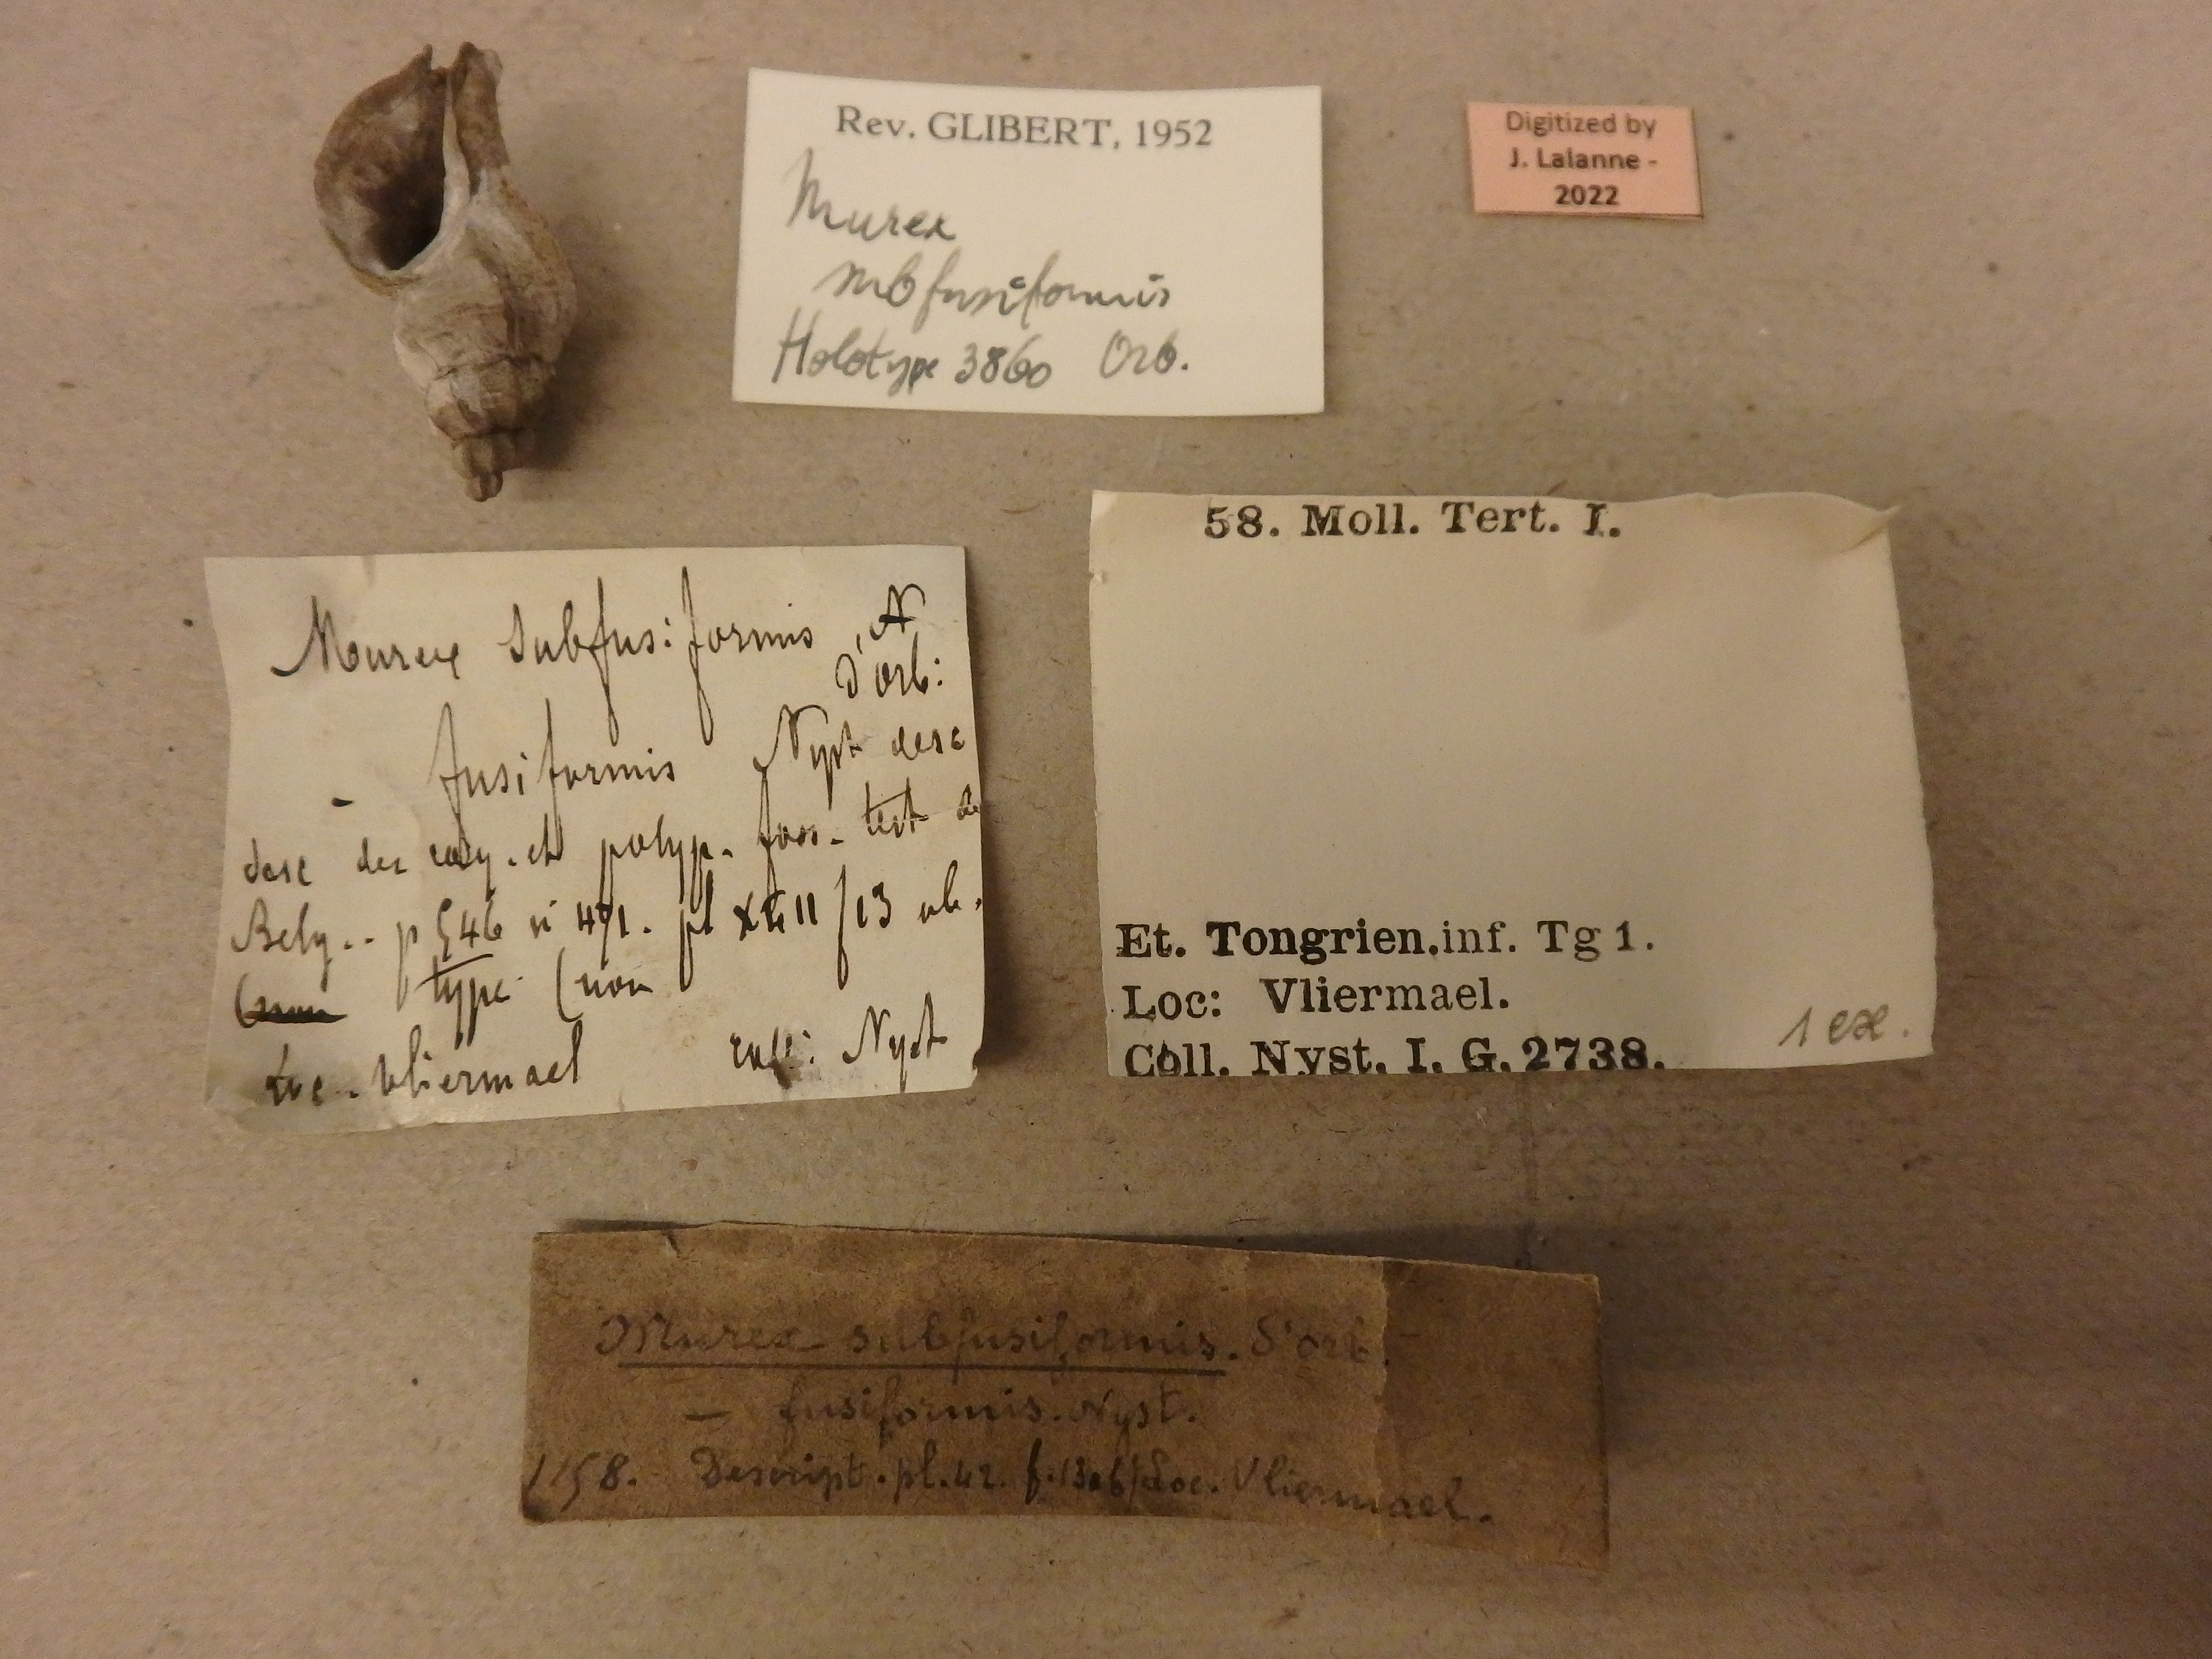 Rev. GLIBERT, 1952
Murex
subfusiformis
Holotype 3860 Orb.
Digitized by
J. Lalanne -
2022
58. Moll. Tert. I.
Et. Tongrien.inf. Tg 1.
Loc: Vliermael.
Coll. Nyst. I. G. 2738.
1 ex.
Murex Subfusiformis, A
d'orb:
- fusiformis Nyst desc
desc des coq. et polyp. foss. tert de
Belg.. p 546 n 471. pl f 13 ab.
type (non
Loc. Vliermael coll: Nyst
Murex subfusiformis. d'orb.
— fusiformis. Nyst.
1158. Descript. pl. 42. f. 13ab/Loc. Vliermael.